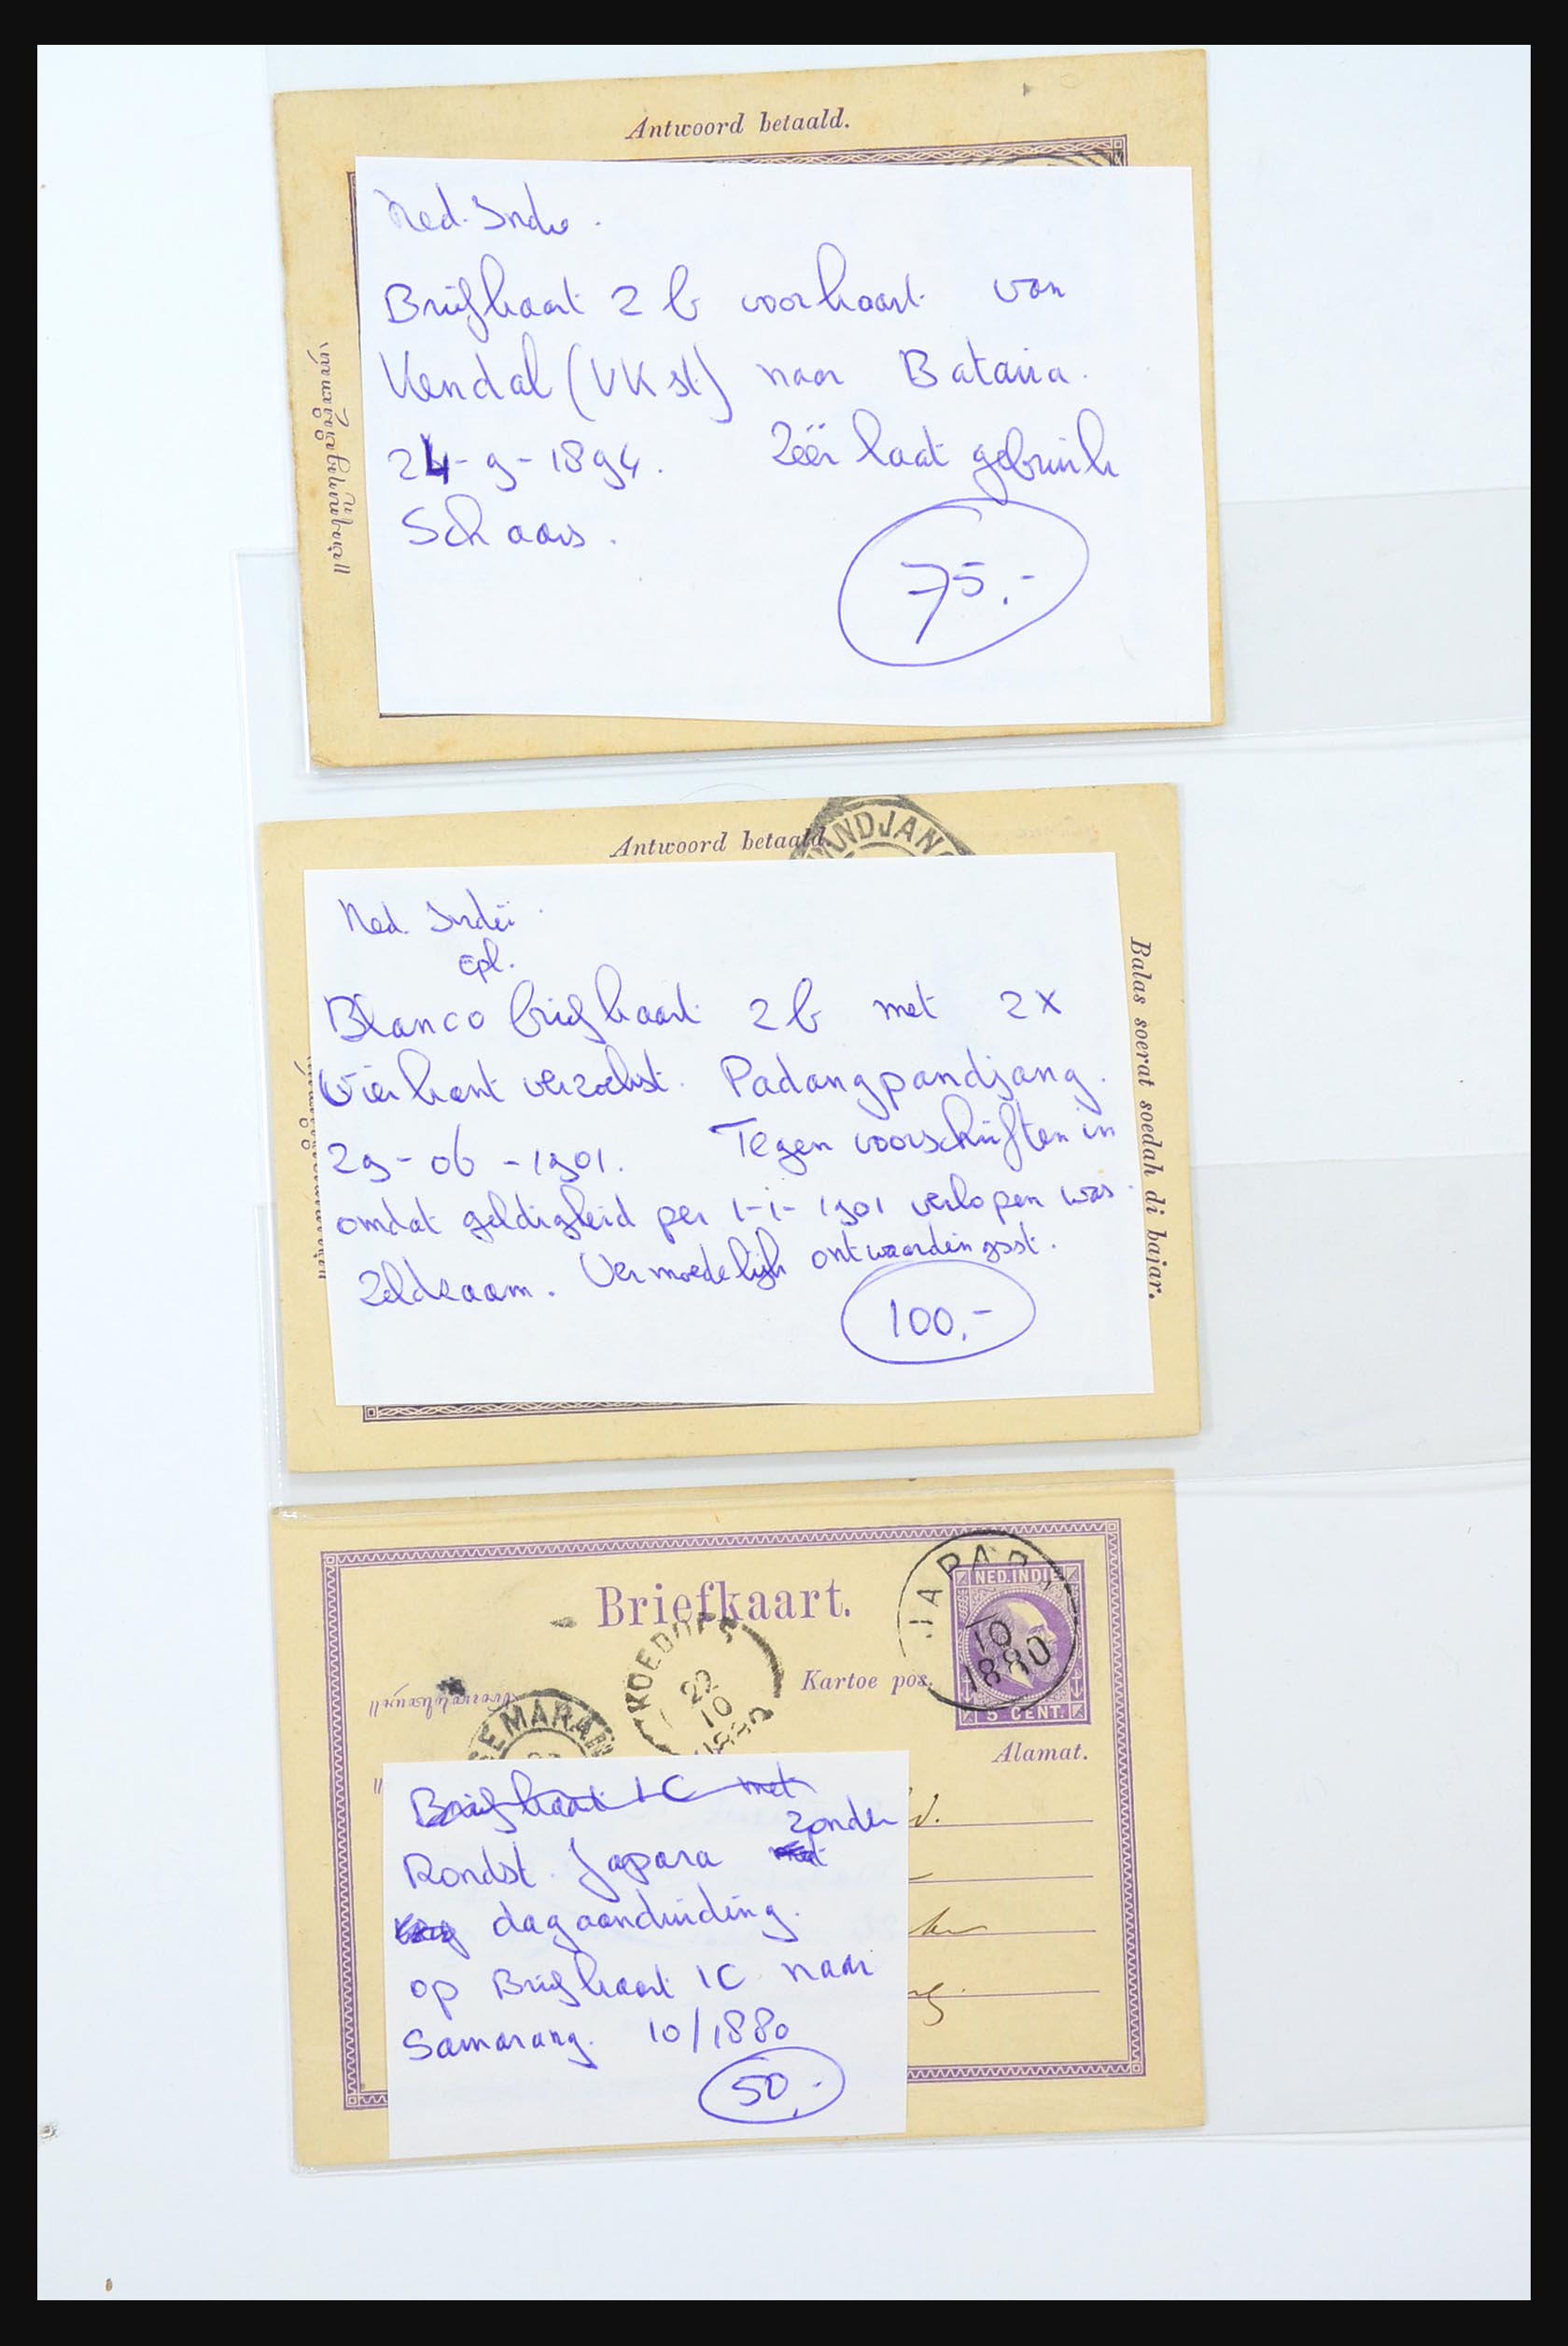 Antwoord betaald.
Ned. Indië.
Briefkaart 2 b voorkaart van
Kendal (VK st.) naar Batavia.
24-9-1894. Zéér laat gebruik
Schaars.
75,-
Antwoord betaald.
ANDJANG
Ned. Indië
cpl.
Blanco briefkaart 2 b met 2x
Vierkant verzoekst. Padangpandjang.
29-06-1901. Tegen voorschriften in
omdat geldigheid per 1-1-1901 verlopen was.
Zeldzaam. Vermoedelijk ontwaardingsst.
100,-
Balas soerat soedah di bajar.
Briefkaart.
JAPARA
10
1880
NED. INDIE
5 CENT.
KOEDOES
22
10
1880
Kartoe pos.
SEMARAN
Alamat.
Briefkaart 1 C met
zonder
Rondst. Japara met
dagaanduiding.
op Briefkaart 1C naar
Samarang. 10/1880
50,-